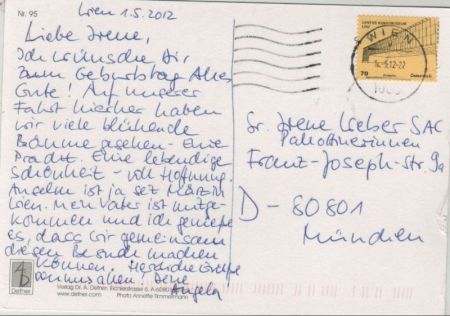 Nr. 95
Wien 1.5.2012
Liebe Irene,
Ich wünsche Dir,
zum Geburtstag Alles
Gute! Auf unserer
Fahrt hierher haben
wir viele blühende
Bäume gesehen - Eine
Pracht. Eine lebendige
Schönheit - voll Hoffnung.
Anselm ist ja seit März in
Wien. Mein Vater ist mitge-
kommen und ich genieße
es, dass wir gemeinsam
diesen Besuch machen
können. Herzliche Grüße
Deine
Angela
Verlag Dr. A. Defner, Eichlerstrasse 6, A-6080
www.defner.com Photo Annette Timmermann
Defner
LENTOS KUNSTMUSEUM
LINZ
70
Österreich
WIEN
Sr. Irene Weber SAC
Pallottinerinnen
Franz-Joseph-Str. 9a
D - 80801
München